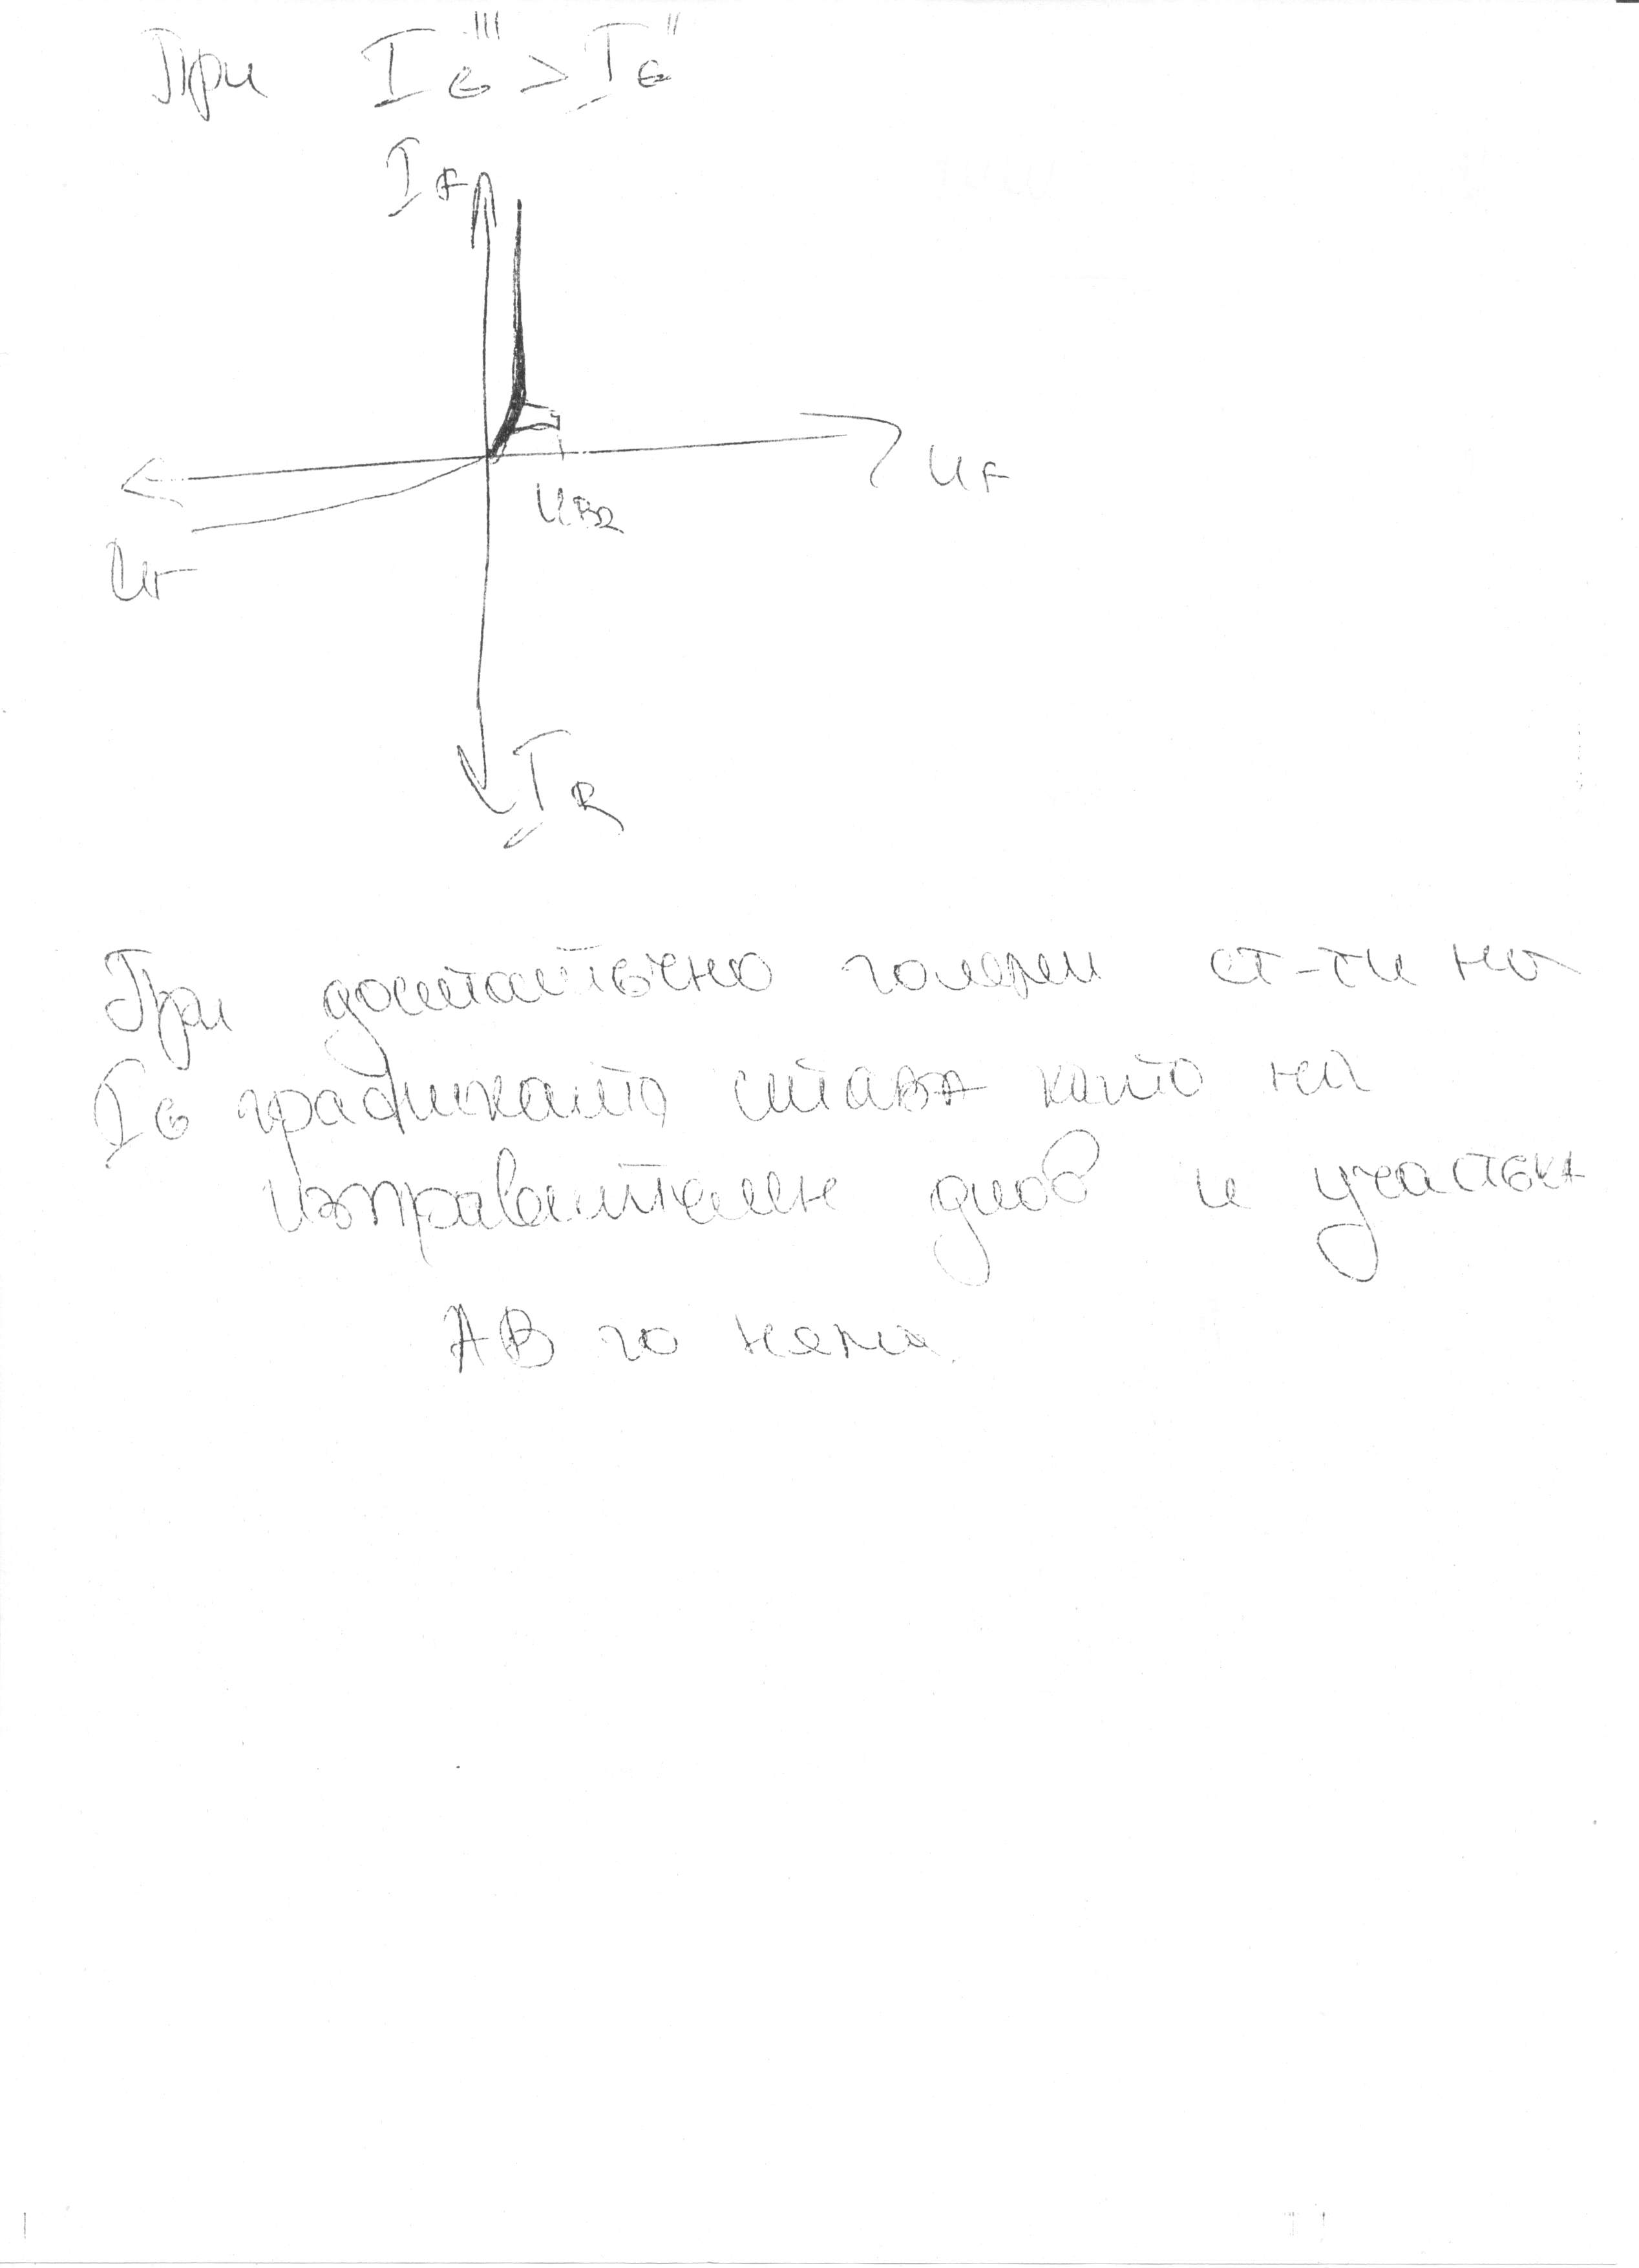 При I_G''' > I_G''
I_F
U_F
U_B2
U_r
I_R
При достатъчно големи ст-ти на
I_G графиката става като на
изправителен диод и участъка
AB го няма.